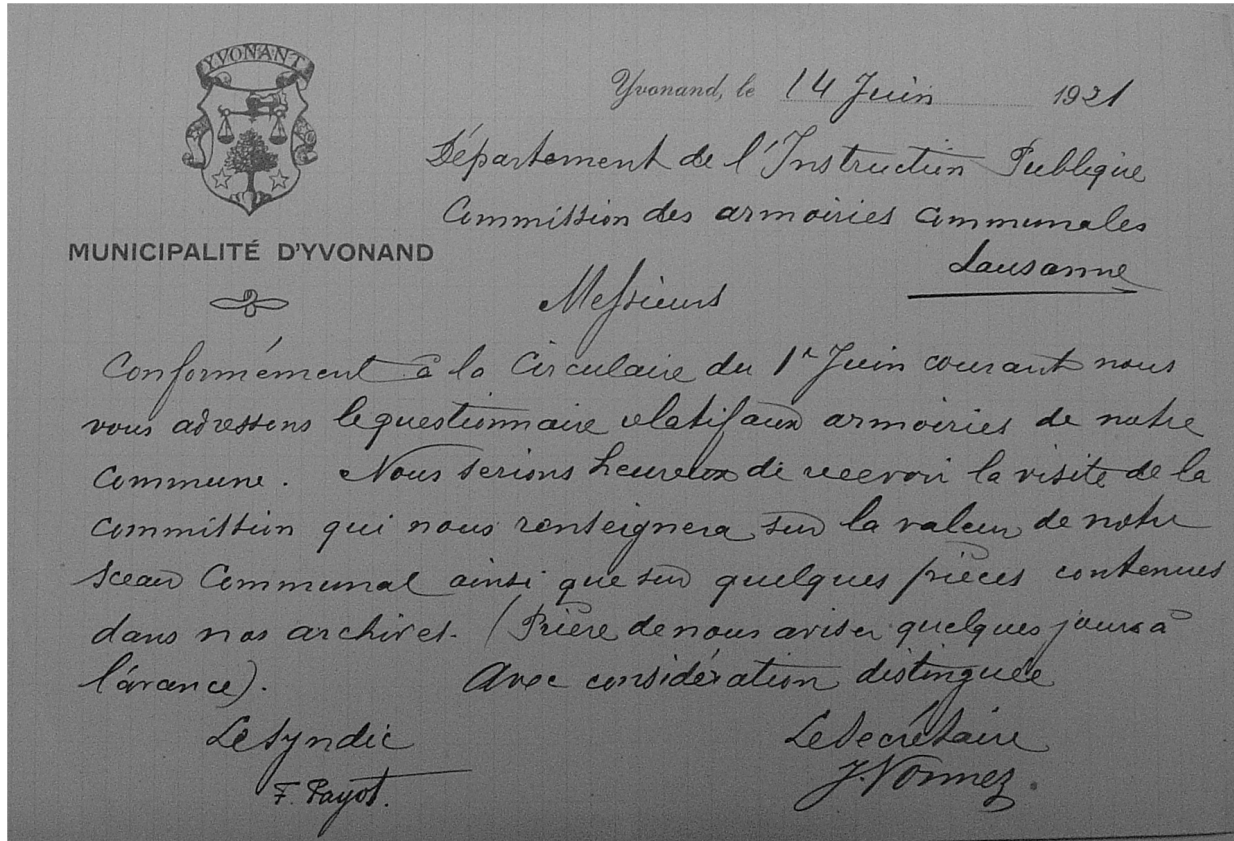 YVONANT
Yvonand, le 14 Juin 1921
Département de l'Instruction Publique
Commission des armoiries Communales
MUNICIPALITÉ D'YVONAND
Lausanne
Messieurs
Conformément à la Circulaire du 1r Juin courant nous
vous adressons le questionnaire relatif aux armoiries de notre
Commune. Nous serions heureux de recevoir la visite de la
Commission qui nous renseignera sur la valeur de notre
Sceau Communal ainsi que sur quelques pièces contenues
dans nos archives. (Prière de nous aviser quelques jours à
l'avance). Avec considération distinguée
Le Syndic Le Secrétaire
F. Payot. J. Vonnez.